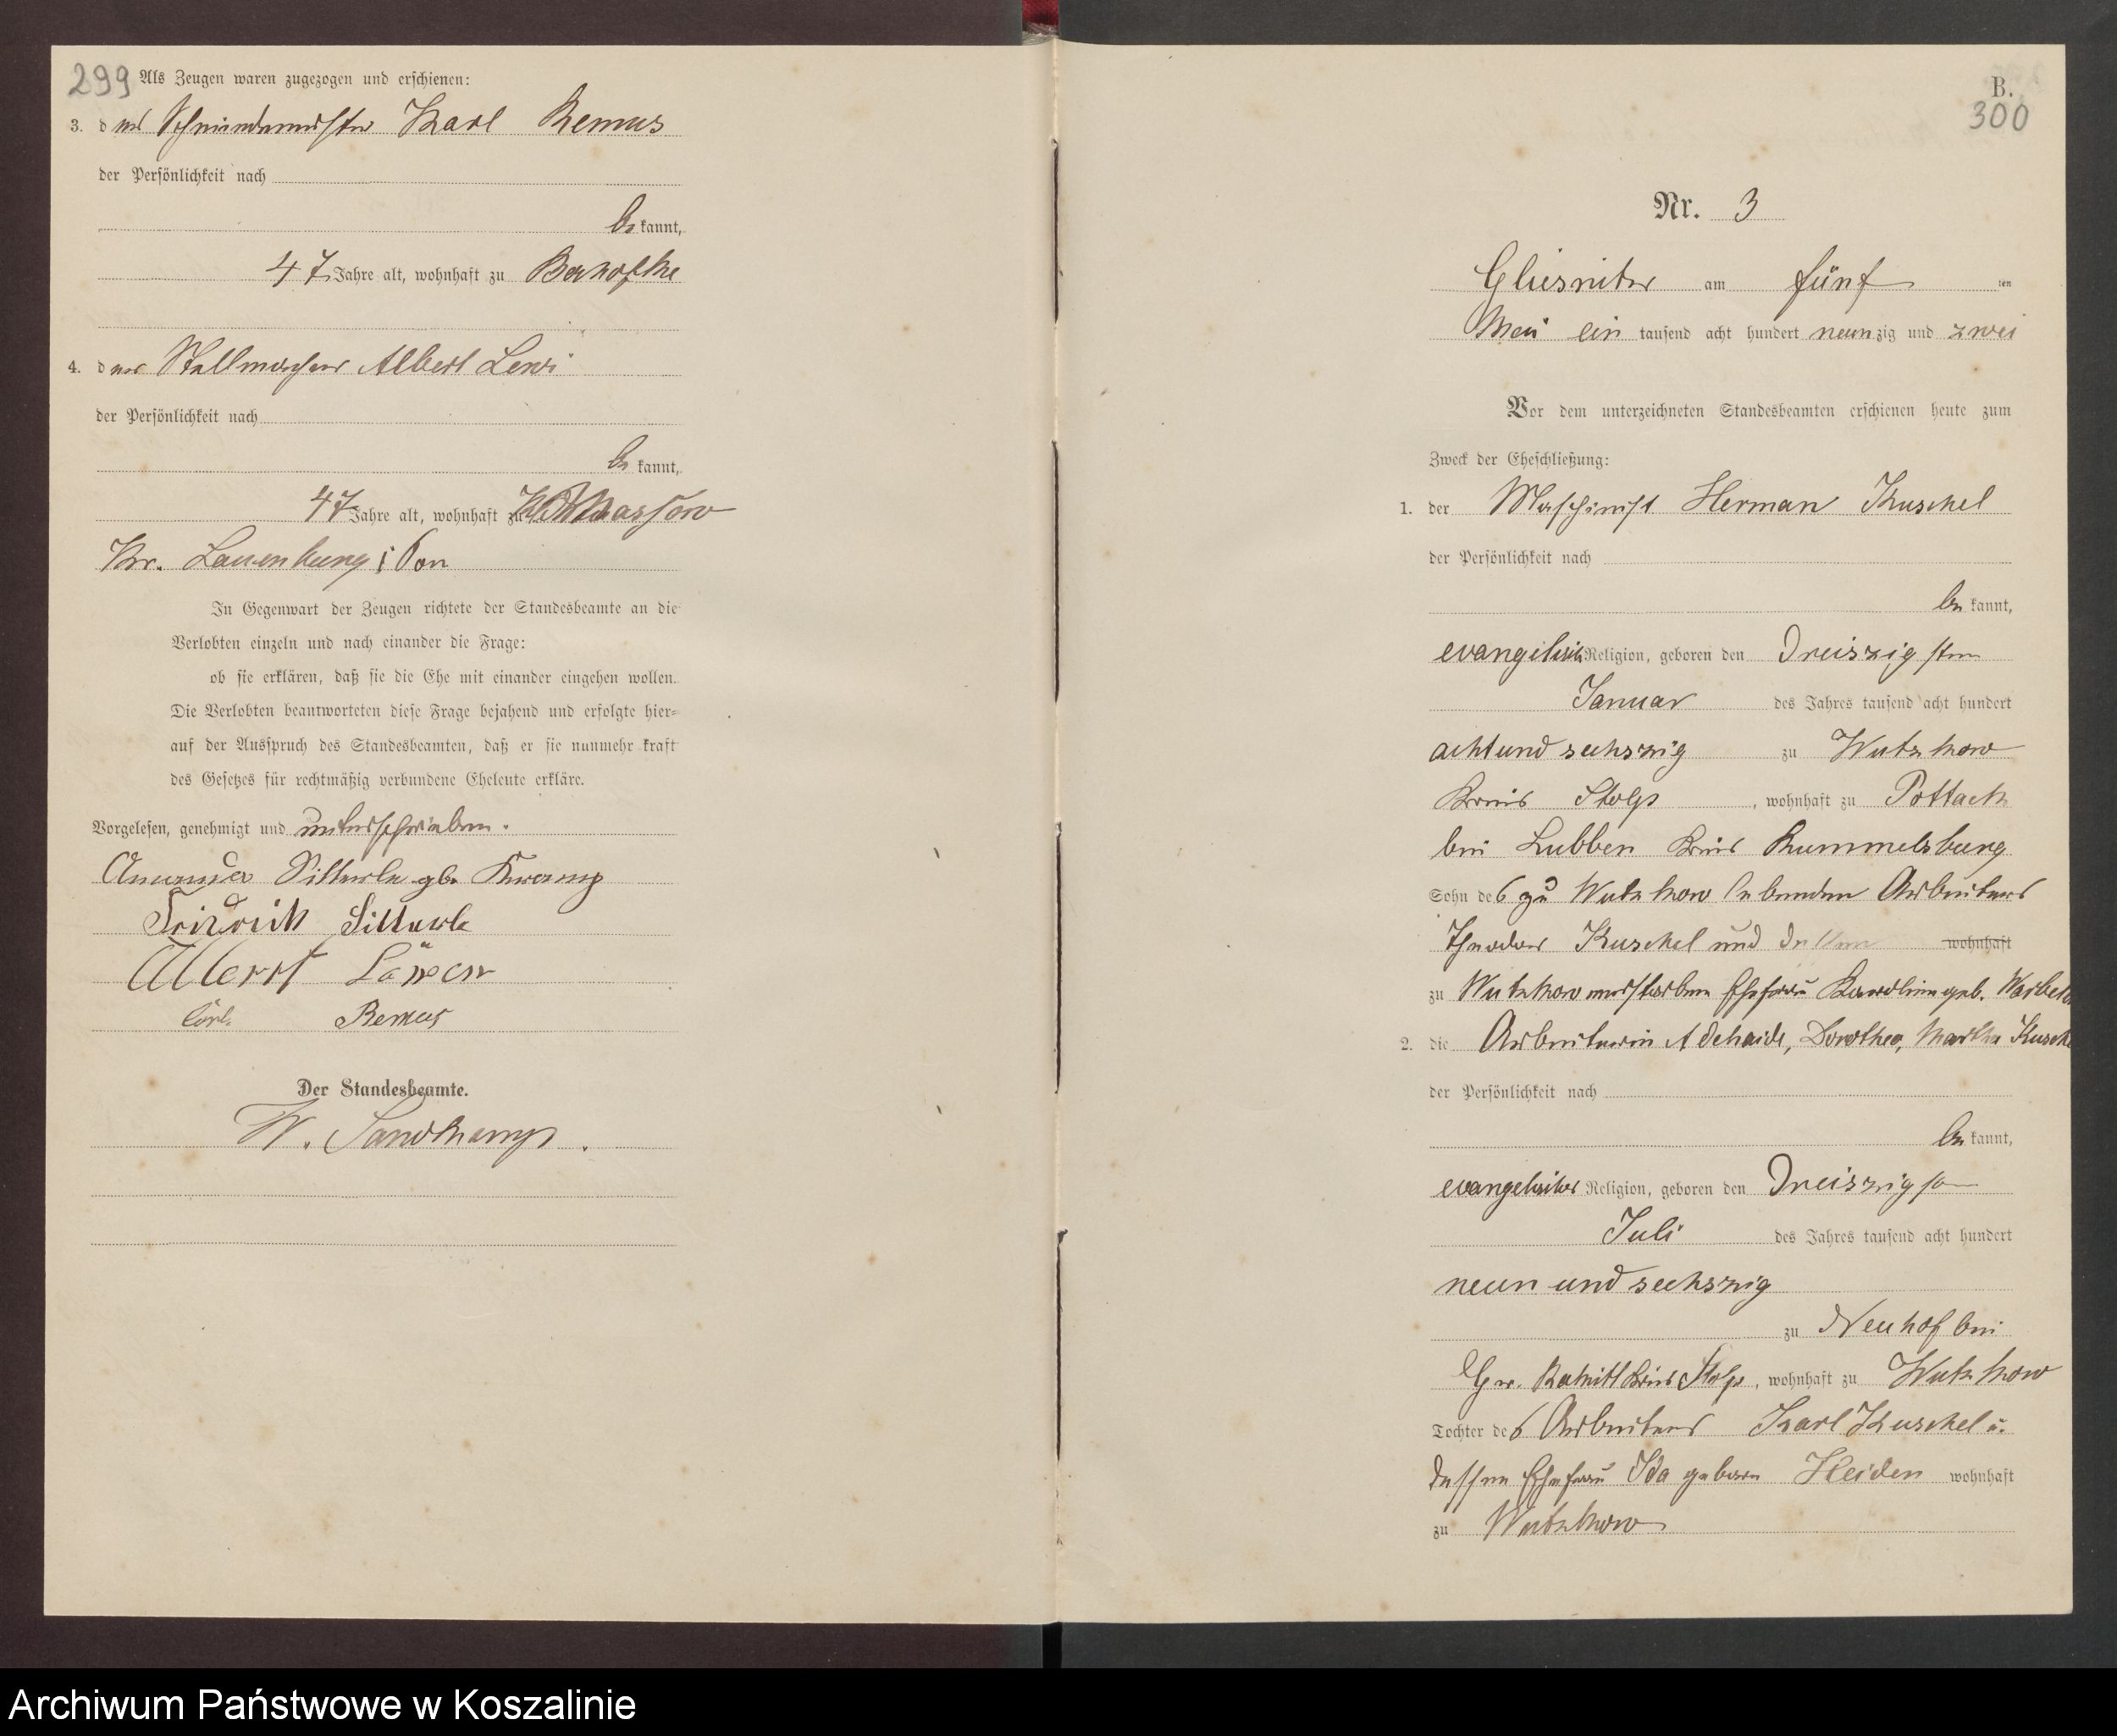 299 Als Zeugen waren zugezogen und erschienen:
3. der Karl Remus
der Persönlichkeit nach
be kannt,
47 Jahre alt, wohnhaft zu
4. der Albert
der Persönlichkeit nach
be kannt,
47 Jahre alt, wohnhaft zu Massow
Kr. Lauenburg i Pom
In Gegenwart der Zeugen richtete der Standesbeamte an die
Verlobten einzeln und nach einander die Frage:
ob sie erklären, daß sie die Ehe mit einander eingehen wollen.
Die Verlobten beantworteten diese Frage bejahend und erfolgte hier=
auf der Ausspruch des Standesbeamten, daß er sie nunmehr kraft
des Gesetzes für rechtmäßig verbundene Eheleute erkläre.
Vorgelesen, genehmigt und unterschrieben.
Remus
Der Standesbeamte.
W. Sandkamp.
B.
300
Nr. 3
Gliesnitz am fünf ten
Mai ein tausend acht hundert neunzig und zwei
Vor dem unterzeichneten Standesbeamten erschienen heute zum
Zweck der Eheschließung:
1. der Maschinist Herman Kuschel
der Persönlichkeit nach
be kannt,
evangelisch Religion, geboren den Dreiszigsten
Januar des Jahres tausend acht hundert
acht und sechszig zu Wutzkow
Kreis Stolp, wohnhaft zu Pottack
bei Lubben Kreis Rummelsburg
Sohn des zu Wutzkow lebenden Arbeiters
Theodor Kuschel und dessen wohnhaft
zu Wutzkow verstorbene Ehefrau geb.
2. die Arbeiterin Adehaide, Dorothea, Martha Kusche
der Persönlichkeit nach
be kannt,
evangelischer Religion, geboren den Dreiszigsten
Juli des Jahres tausend acht hundert
neun und sechszig
zu Neuhof bei
Gr. Rakitt Kreis Stolp, wohnhaft zu Wutzkow
Tochter des Arbeiters Karl Kuschel u.
dessen Ehefrau Ida geboren Heiden wohnhaft
zu Wutzkow
Archiwum Państwowe w Koszalinie